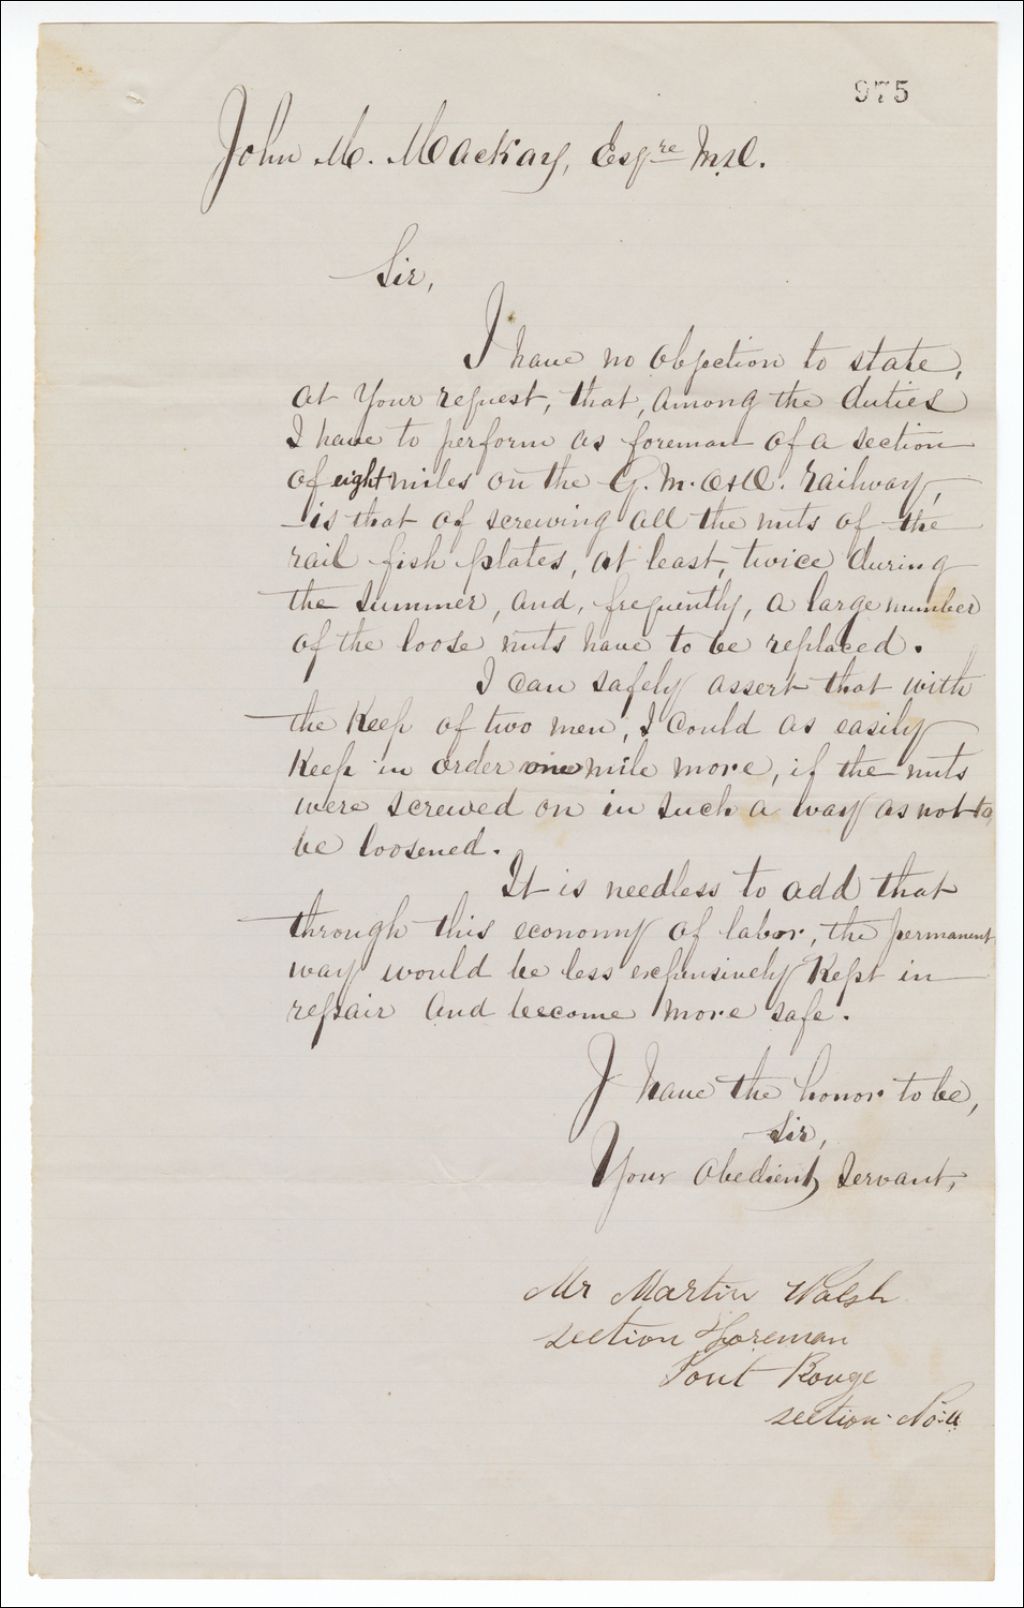 975
John M. MacKay, Esqre M.D.
Sir,
I have no objection to state,
at your request, that, among the duties
I have to perform as foreman of a section
of eight miles on the Q. M. O & O. railway,
is that of screwing all the nuts of the
rail fish plates, at least, twice during
the summer, and, frequently, a large number
of the loose nuts have to be replaced.
I can safely assert that with
the Keep of two men, I could as easily
Keep in order one mile more, if the nuts
were screwed on in such a way as not to
be loosened.
It is needless to add that
through this economy of labor, the permanent
way would be less expensively Kept in
repair and become more safe.
I have the honor to be,
Sir,
Your obedient servant,
Mr Martin Walsh
section Foreman
Pont Rouge
section No: